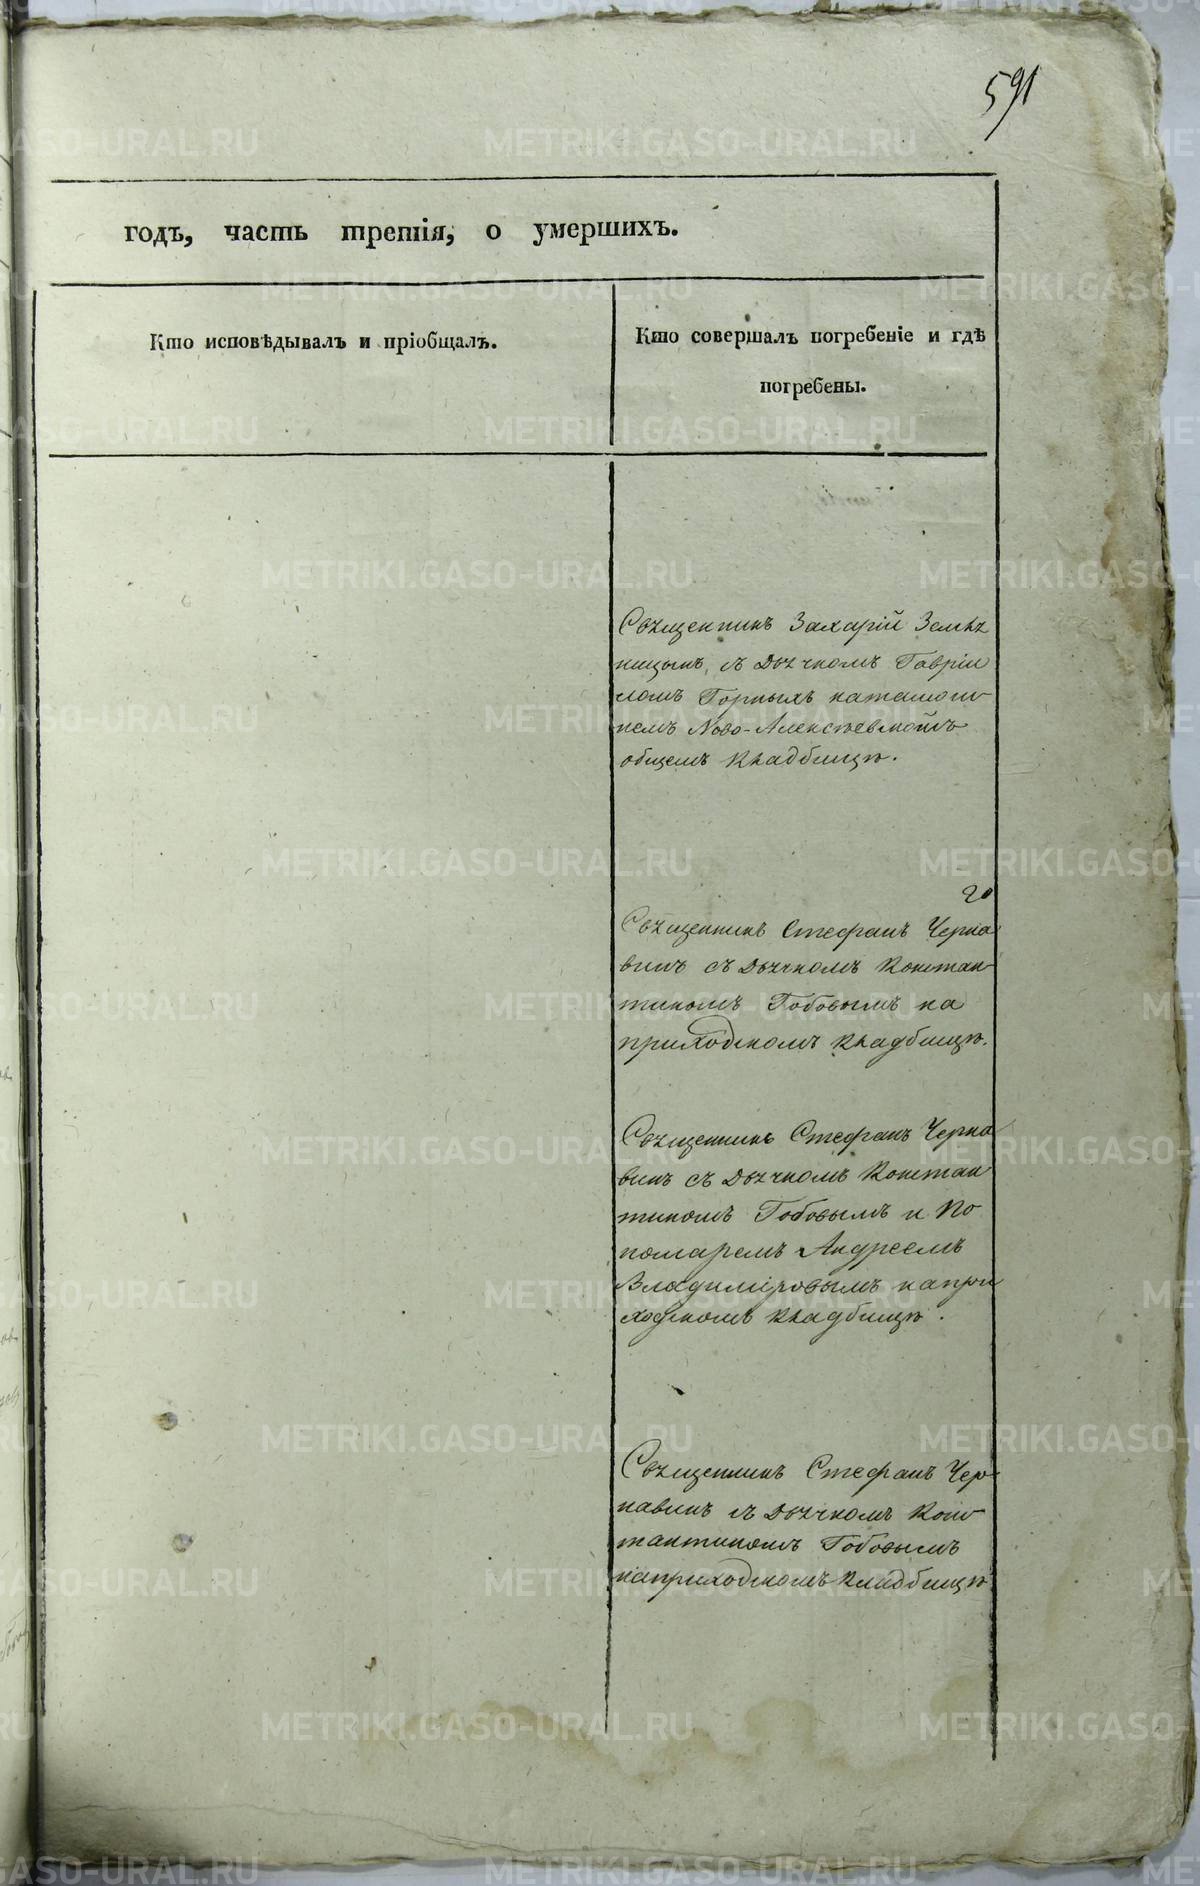 591
годъ, часть третія, о умершихъ.
Кто исповѣдывалъ и пріобщалъ.
Кто совершалъ погребеніе и гдѣ
погребены.
Священникъ Захарій Земля
ницынъ, съ Дьячкомъ Гаврiи
ломъ Горныхъ натамош
немъ Ново-Алексѣевскомъ
общемъ кладбищѣ.
20
Священникъ Стефанъ Черна
винъ съ Дьячкомъ Констан
тиномъ Гобовымъ на
приходскомъ кладбищѣ.
Священникъ Стефанъ Черна
винъ съ Дьячкомъ Констан
тиномъ Гобовымъ и По
номаремъ Андреемъ
Владиміровымъ напри
ходскомъ кладбищѣ.
Священникъ Стефанъ Чер
навинъ съ Дьячкомъ Конс
тантиномъ Гобовымъ
наприходскомъ кладбищѣ
METRIKI.GASO-URAL.RU